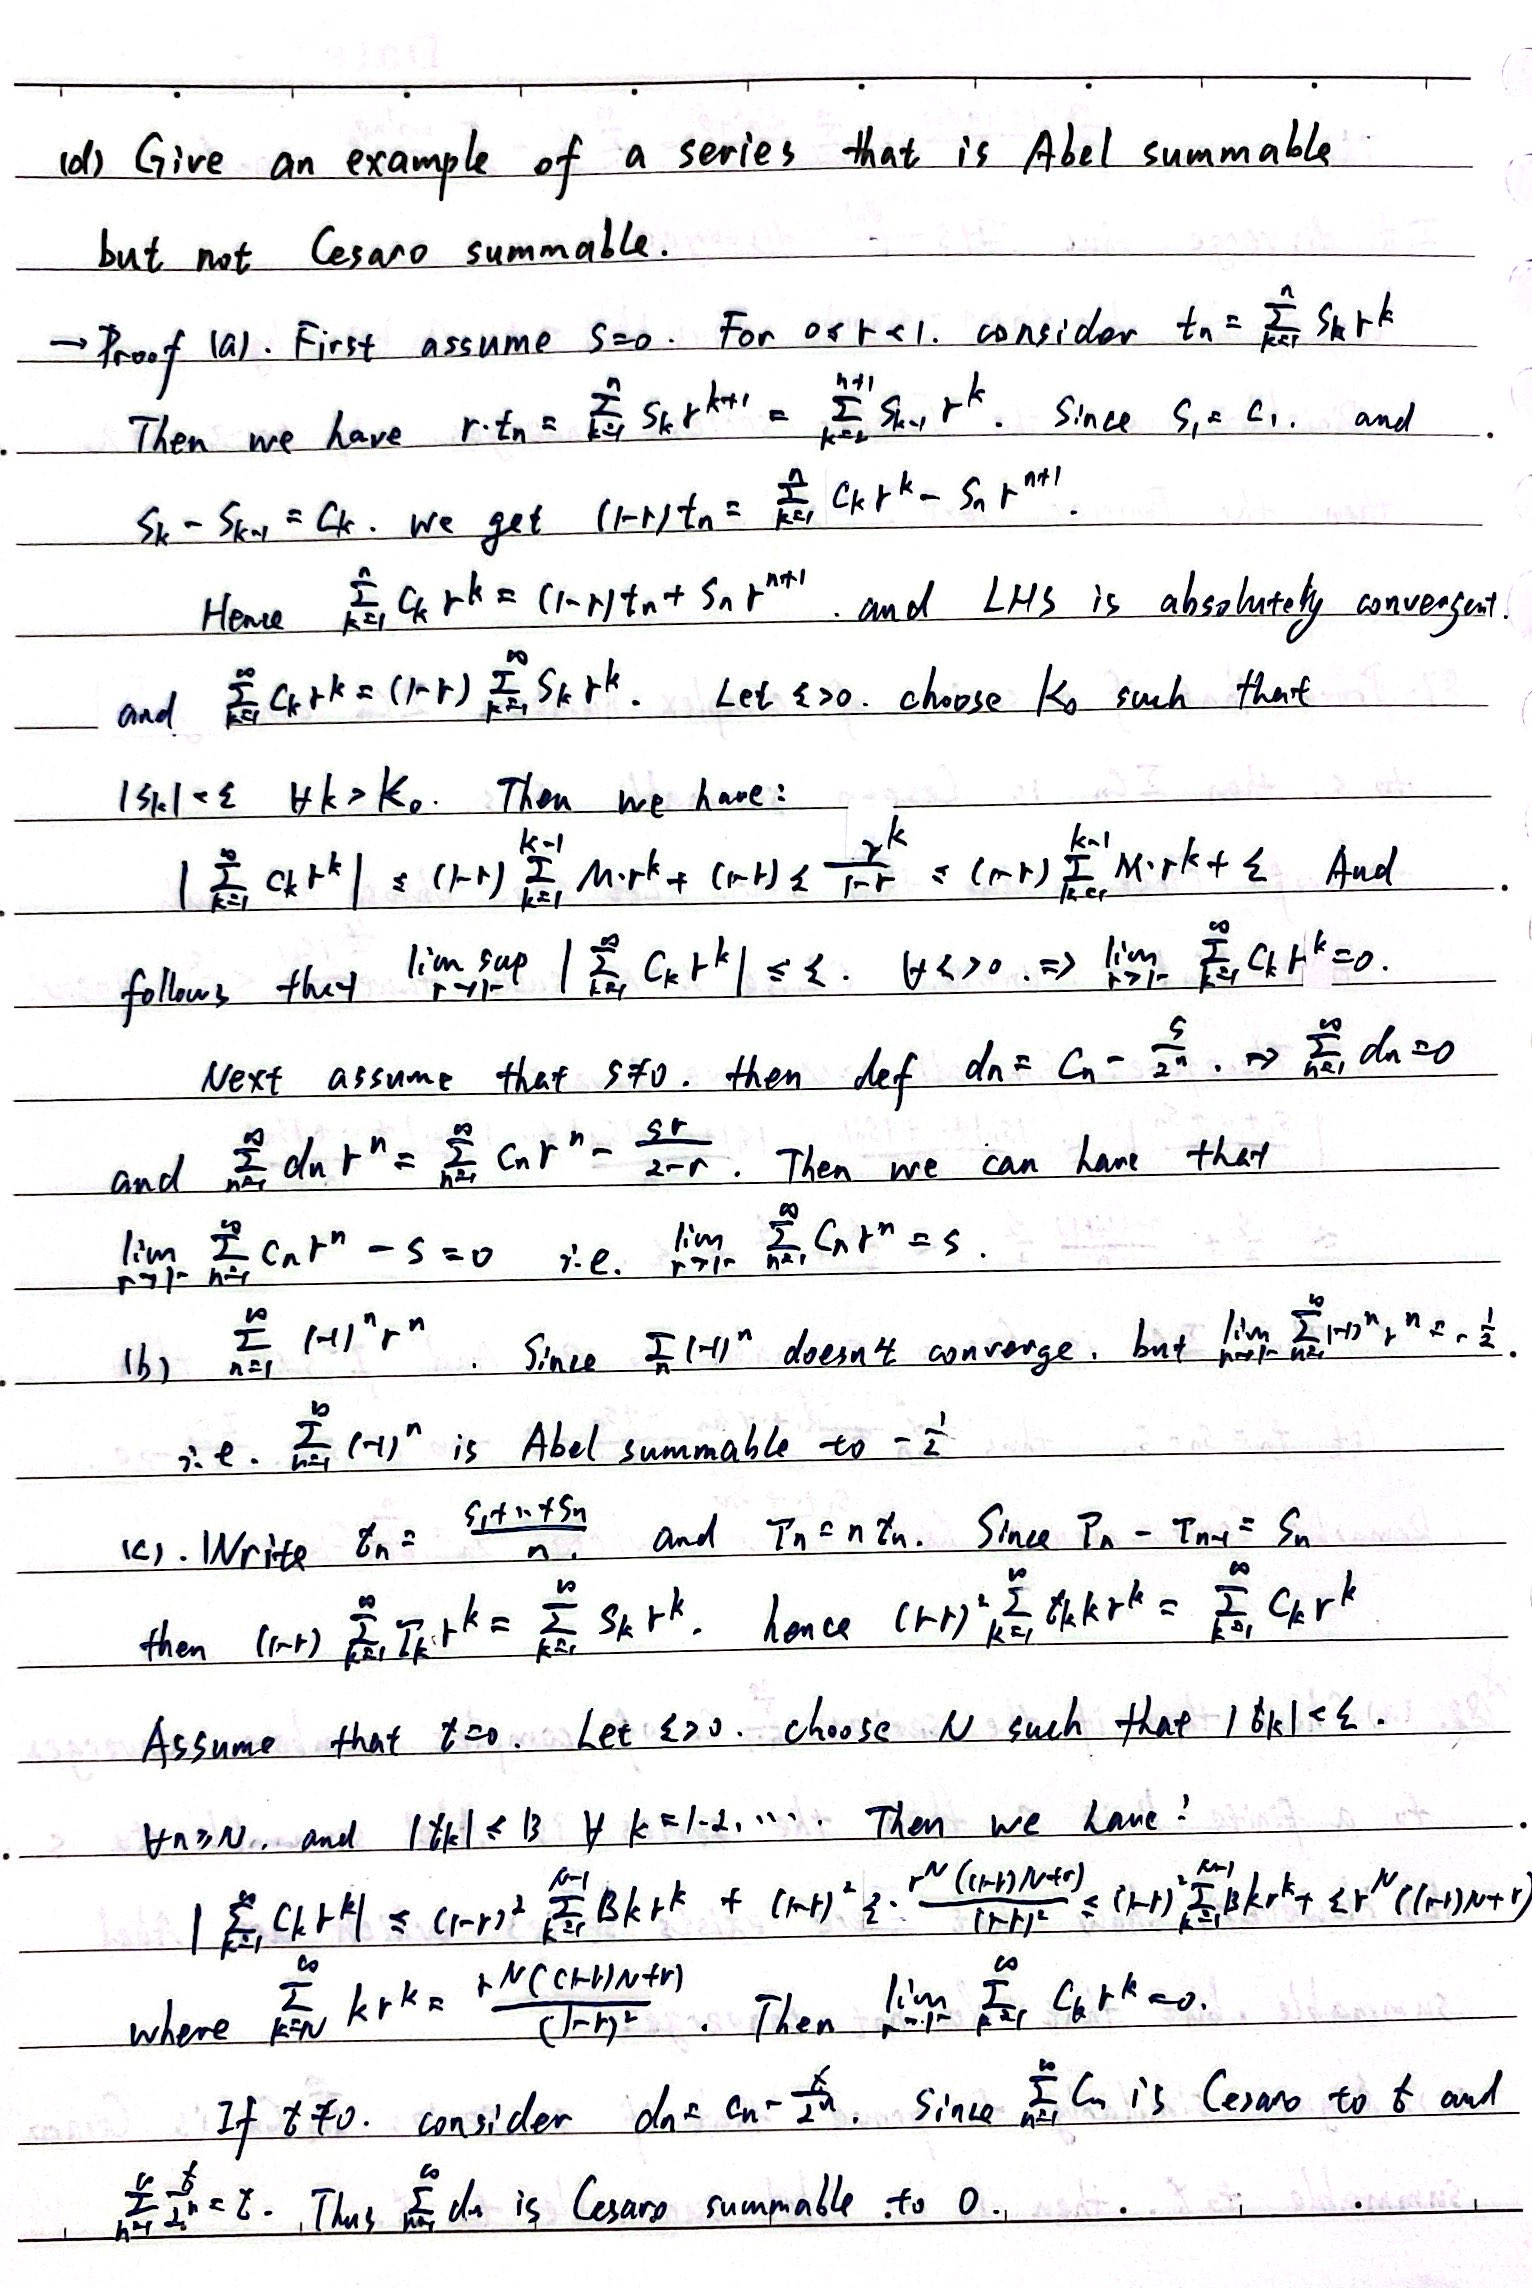 (d) Give an example of a series that is Abel summable
but not Cesaro summable.
→ Proof (a). First assume S=0. For 0≤r<1. consider t_n = \sum_{k=1}^{n} S_k r^k
Then we have r·t_n = \sum_{k=1}^{n} S_k r^{k+1} = \sum_{k=2}^{n+1} S_{k-1} r^k. Since S_1 = C_1. and
S_k - S_{k-1} = C_k. we get (1-r)t_n = \sum_{k=1}^{n} C_k r^k - S_n r^{n+1}.
Hence \sum_{k=1}^{n} C_k r^k = (1-r)t_n + S_n r^{n+1}. and LHS is absolutely convergent.
and \sum_{k=1}^{∞} C_k r^k = (1-r) \sum_{k=1}^{∞} S_k r^k. Let ε>0. choose K_0 such that
|S_k|<ε ∀k>K_0. Then we have:
|\sum_{k=1}^{∞} C_k r^k| ≤ (1-r) \sum_{k=1}^{k-1} M·r^k + (1-r) ε \frac{r^k}{1-r} ≤ (1-r) \sum_{k=1}^{k-1} M·r^k + ε And
follows that \limsup_{r→1-} |\sum_{k=1}^{∞} C_k r^k| ≤ ε. ∀ε>0. ⇒ \lim_{r→1-} \sum_{k=1}^{∞} C_k r^k = 0.
Next assume that S≠0. then def d_n = C_n - \frac{S}{2^n}. ⇒ \sum_{n=1}^{∞} d_n = 0
and \sum_{n=1}^{∞} d_n r^n = \sum_{n=1}^{∞} C_n r^n - \frac{Sr}{2-r}. Then we can have that
\lim_{r→1-} \sum_{n=1}^{∞} C_n r^n - S = 0 i.e. \lim_{r→1-} \sum_{n=1}^{∞} C_n r^n = S.
(b) \sum_{n=1}^{∞} (-1)^n r^n. Since \sum_n (-1)^n doesn't converge. but \lim_{r→1-} \sum_{n=1}^{∞} (-1)^n r^n = -\frac{1}{2}.
i.e. \sum_{n=1}^{∞} (-1)^n is Abel summable to -\frac{1}{2}
(c). Write t_n = \frac{S_1+...+S_n}{n}. and T_n = n t_n. Since T_n - T_{n-1} = S_n
then (1-r) \sum_{k=1}^{∞} T_k r^k = \sum_{k=1}^{∞} S_k r^k. hence (1-r)^2 \sum_{k=1}^{∞} t_k k r^k = \sum_{k=1}^{∞} C_k r^k
Assume that t=0. Let ε>0. choose N such that |t_k|<ε.
∀n≥N. and |t_k| ≤ B ∀ k=1.2.···. Then we have:
|\sum_{k=1}^{∞} C_k r^k| ≤ (1-r)^2 \sum_{k=1}^{N-1} B k r^k + (1-r)^2 ε· \frac{r^N((1-r)N+r)}{(1-r)^2} ≤ (1-r)^2 \sum_{k=1}^{N-1} B k r^k + ε r^N((1-r)N+r)
where \sum_{k=N}^{∞} k r^k = \frac{r^N((1-r)N+r)}{(1-r)^2}. Then \lim_{r→1-} \sum_{k=1}^{∞} C_k r^k = 0.
If t≠0. consider d_n = C_n - \frac{t}{2^n}. Since \sum_{n=1}^{∞} C_n is Cesaro to t and
\sum_{n=1}^{∞} \frac{t}{2^n} = t. Thus \sum_{n=1}^{∞} d_n is Cesaro summable to 0.